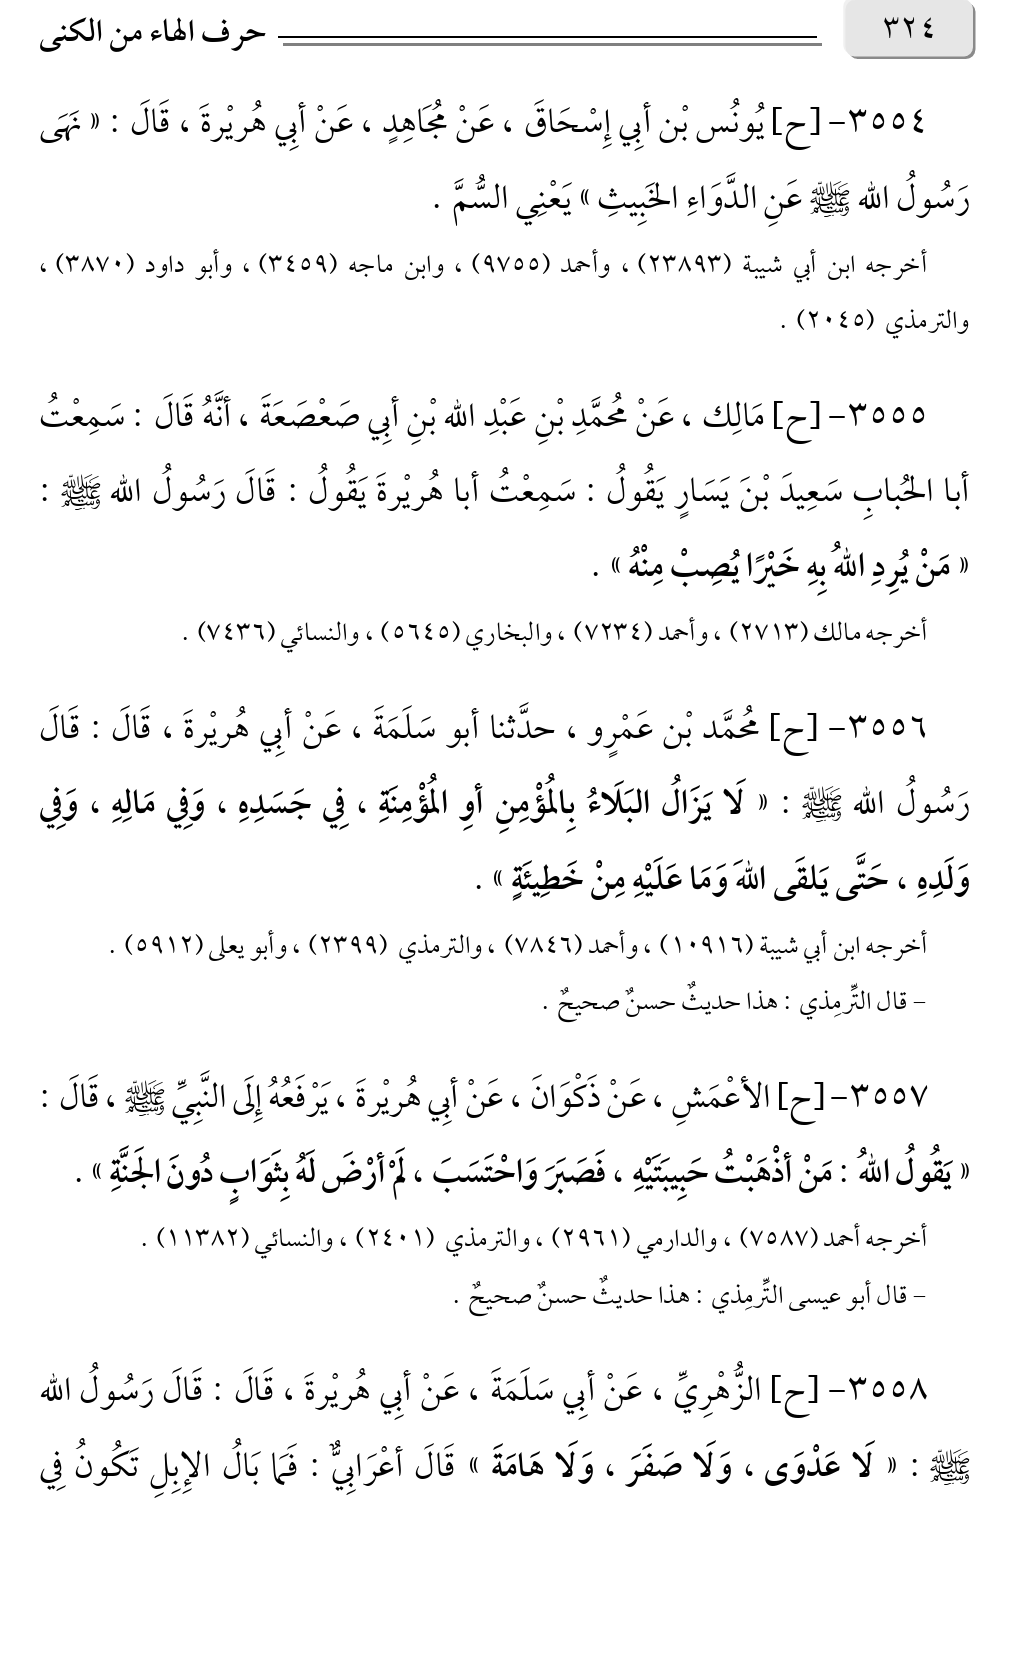 ٣٢٤
حرف الهاء من الكنى
٣٥٥٤- [ح] يُونُس بْن أبي إِسْحَاقَ ، عَنْ مُجَاهِدٍ ، عَنْ أبِي هُريْرةَ ، قَالَ : « نَهَى
رَسُولُ الله ﷺ عَنِ الدَّوَاءِ الخَبِيثِ » يَعْنِي السُّمَّ .
أخرجه ابن أبي شيبة (٢٣٨٩٣) ، وأحمد (٩٧٥٥) ، وابن ماجه (٣٤٥٩) ، وأبو داود (٣٨٧٠) ،
والترمذي (٢٠٤٥) .
٣٥٥٥- [ح] مَالِك ، عَنْ مُحمَّدِ بْنِ عَبْدِ الله بْنِ أبي صَعْصَعَةَ ، أنَّهُ قَالَ : سَمِعْتُ
أبا الحُبابِ سَعِيدَ بْنَ يَسَارٍ يَقُولُ : سَمِعْتُ أبا هُريْرةَ يَقُولُ : قَالَ رَسُولُ الله ﷺ :
« مَنْ يُرِدِ اللهُ بِهِ خَيْرًا يُصِبْ مِنْهُ » .
أخرجه مالك (٢٧١٣) ، وأحمد (٧٢٣٤) ، والبخاري (٥٦٤٥) ، والنسائي (٧٤٣٦) .
٣٥٥٦- [ح] مُحمَّد بْن عَمْرٍو ، حدَّثنا أبو سَلَمَةَ ، عَنْ أبِي هُريْرةَ ، قَالَ : قَالَ
رَسُولُ الله ﷺ : « لَا يَزَالُ البَلَاءُ بِالمُؤْمِنِ أوِ المُؤْمِنَةِ ، فِي جَسَدِهِ ، وَفِي مَالِهِ ، وَفِي
وَلَدِهِ ، حَتَّى يَلقَى اللهَ وَمَا عَلَيْهِ مِنْ خَطِيئَةٍ » .
أخرجه ابن أبي شيبة (١٠٩١٦) ، وأحمد (٧٨٤٦) ، والترمذي (٢٣٩٩) ، وأبو يعلى (٥٩١٢) .
– قال التِّرمِذي : هذا حديثٌ حسنٌ صحيحٌ .
٣٥٥٧- [ح] الأعْمَشِ ، عَنْ ذَكْوَانَ ، عَنْ أبِي هُريْرةَ ، يَرْفَعُهُ إِلَى النَّبِيِّ ﷺ ، قَالَ :
« يَقُولُ اللهُ : مَنْ أذْهَبْتُ حَبِيبَتَيْهِ ، فَصَبَرَ وَاحْتَسَبَ ، لَمْ أرْضَ لَهُ بِثَوَابٍ دُونَ الجَنَّةِ » .
أخرجه أحمد (٧٥٨٧) ، والدارمي (٢٩٦١) ، والترمذي (٢٤٠١) ، والنسائي (١١٣٨٢) .
– قال أبو عيسى التِّرمِذي : هذا حديثٌ حسنٌ صحيحٌ .
٣٥٥٨- [ح] الزُّهْرِيِّ ، عَنْ أبي سَلَمَةَ ، عَنْ أبِي هُريْرةَ ، قَالَ : قَالَ رَسُولُ الله
ﷺ : « لَا عَدْوَى ، وَلَا صَفَرَ ، وَلَا هَامَةَ » قَالَ أعْرَابِيٌّ : فَمَا بَالُ الإِبِلِ تَكُونُ فِي